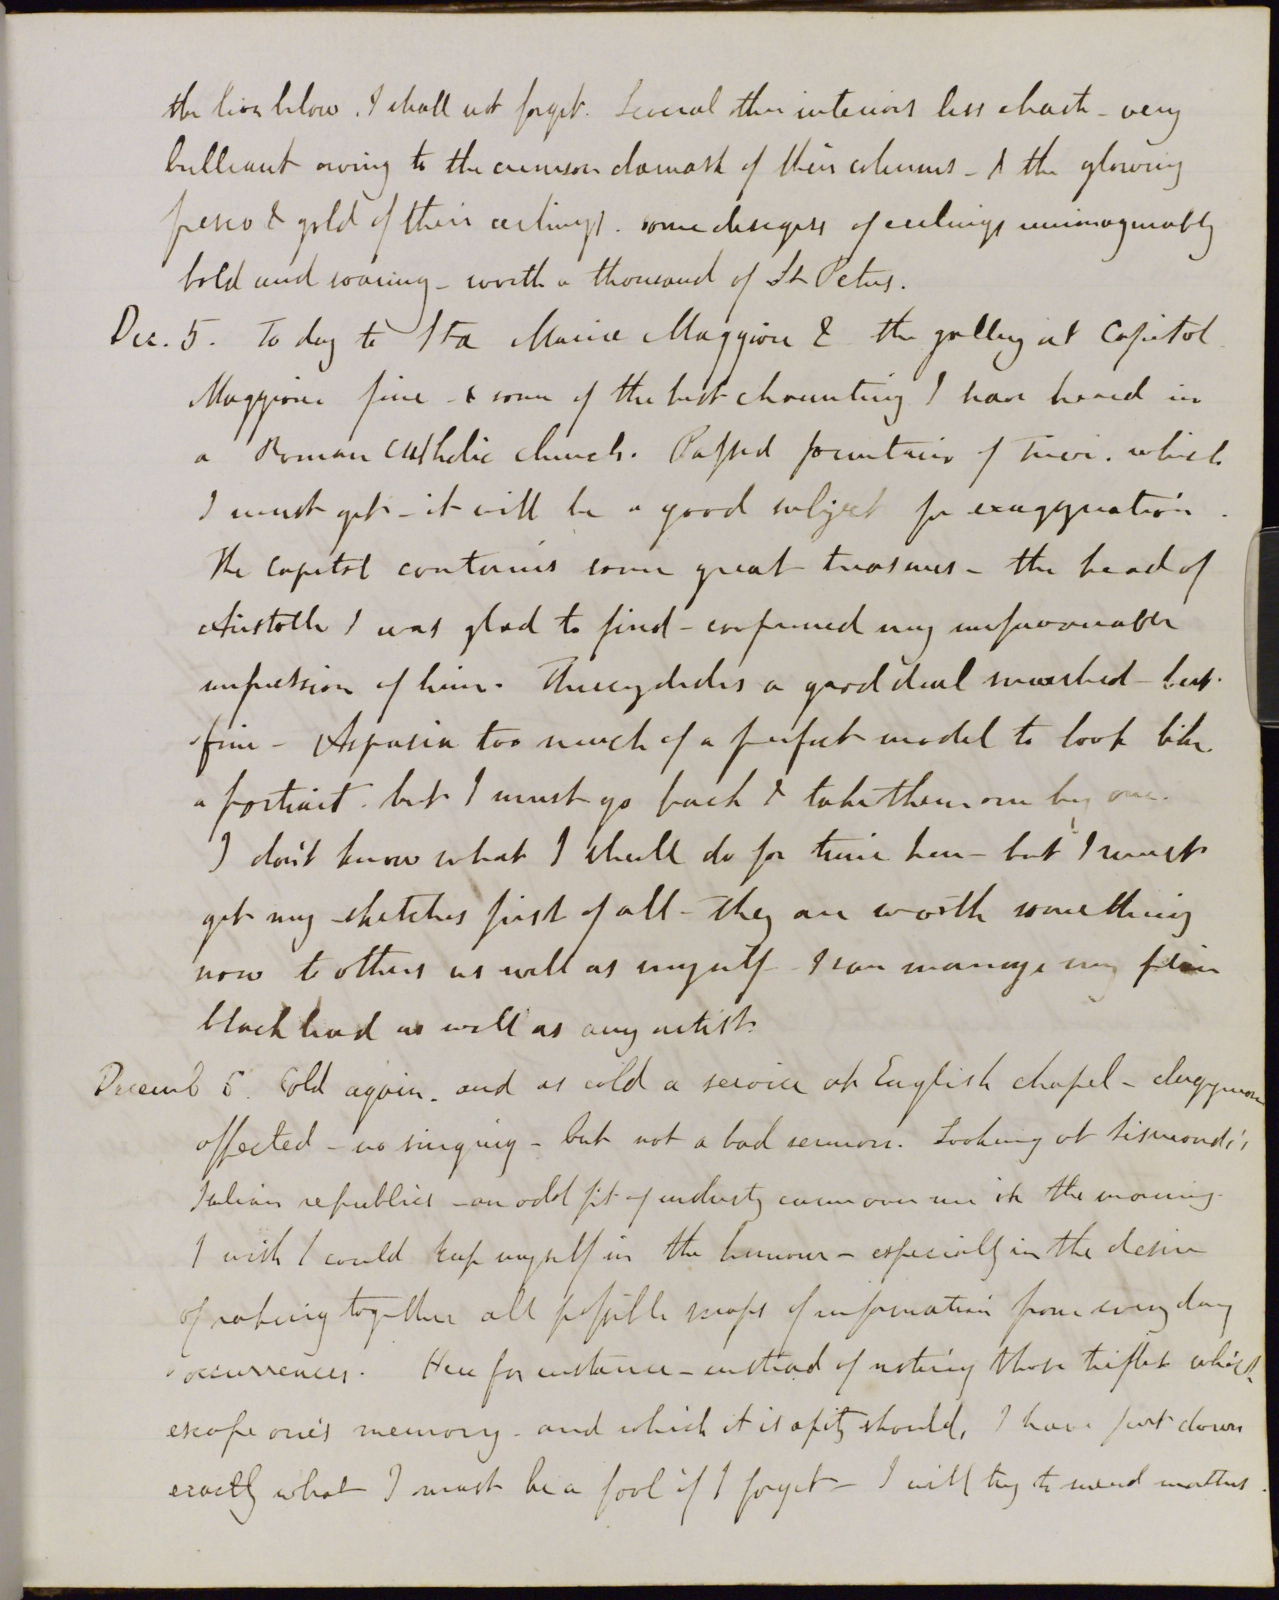 the lion below. I shall not forget. Several other interiors less chaste - very
brilliant owing to the crimson damask of their columns - & the glowing
fresco & gold of their ceilings. some designs of ceilings unimaginably
bold and soaring - worth a thousand of St Peters.
Dec. 5. To day to Sta Maria Maggiore & the gallery at Capitol.
Maggiore fine - & some of the best chaunting I have heard in
a Roman Catholic church. Passed fountain of Trevi. which
I must get - it will be a good subject for exaggeration.
The Capitol contains some great treasures - the head of
Aristotle I was glad to find - confirmed my unfavourable
impression of him. Thucydides a good deal smashed - but
fine - Aspasia too much of a perfect model to look like
a portrait. but I must go back & take them one by one.
I don't know what I shall do for time here - but I must
get my sketches first of all - they are worth something
now to others as well as myself - I can manage my
black lead as well as any artist.
Decemb 5. Cold again. and as cold a service at English chapel - clergyman
affected - no singing - but not a bad sermon. Looking at Sismondi's
Italian republics - an odd fit of industry came over me in the morning.
I wish I could keep myself in the humour - especially in the desire
of raking together all possible scraps of information from every day
occurrences. Here for instance - instead of noting those trifles which
escape one's memory - and which it is a pity should, I have put down
exactly what I must be a fool if I forget - I will try to mend matters.